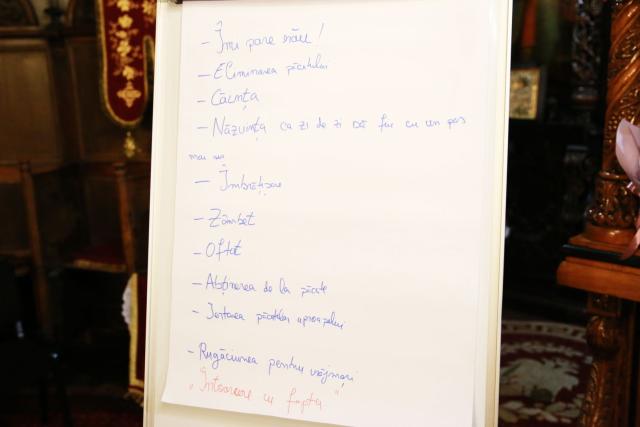 - Îmi pare rău!
- Eliminarea păcatelor
- Căința
- Năzuința ca zi de zi să fiu cu un pas
mai sus
- Îmbrățișare
- Zâmbet
- Oftat
- Abținerea de la păcate
- Iertarea păcatelor aproapelui
- Rugăciunea pentru vrăjmași
„Întoarcere cu fapta"